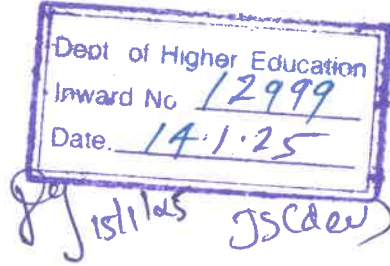 Dept of Higher Education
Inward No 12999
Date. 14.1.25
15/1/25 JS(dev)